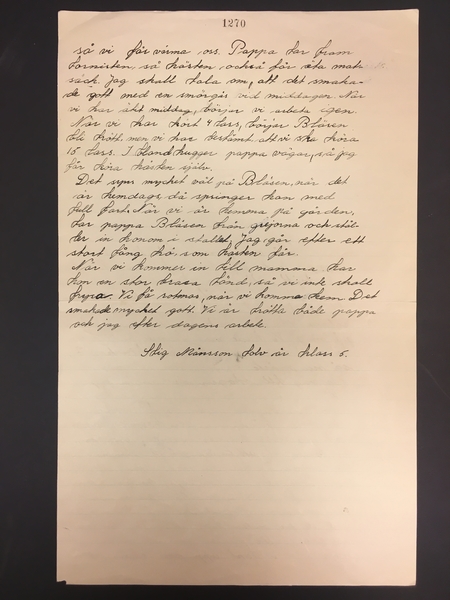 1270
så vi får värma oss. Pappa tar fram
tornistern så hästen också får äta mat
säck. Jag skall tala om, att det smaka-
de gott med en smörgås vid middagen. När
vi har ätit middag, börjar vi arbeta igen.
När vi har kört 9 lass, börjar Blåsen
bli trött, men vi har bestämt att vi ska köra
15 lass. I bland hugger pappa vägar, så jag
får köra hästen själv.
Det syns mycket väl på Blåsen, när det
är hemdags då springer han med
full fart. När vi är hemma på gården,
tar pappa Blåsen från grejorna och stäl-
ler in honom i stallet, Jag går efter ett
stort fång hö som hästen får.
När vi kommer in till mamma har
hon en stor brasa tänd, så vi ink skall
frysa. Vi få rotmos, när vi komma hem. Det
smakade mycket gott. Vi är trötta både pappa
och jag efter dagens arbete.
Stig Månsson tolv år klass 6.